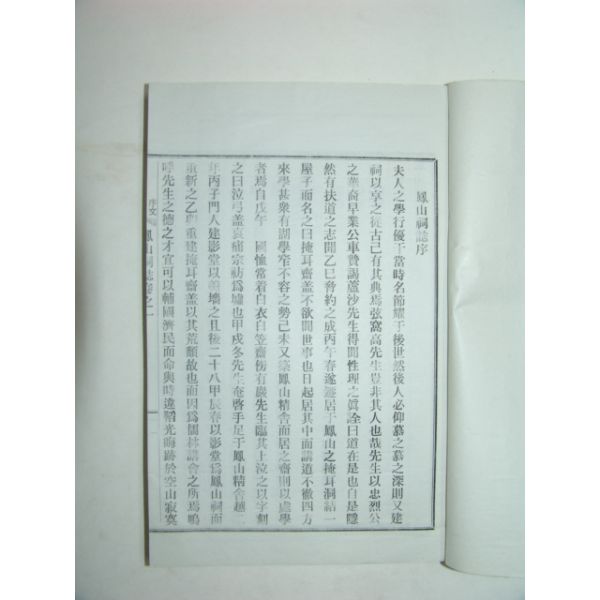 鳳山祠誌序
夫人之學行優于當時名節耀于後世然後人必仰慕之慕之深則又建
祠以享之從古己有其典焉弦窩高先生豈非其人也哉先生以忠烈公
之華裔早業公車贊謁蘆沙先生得聞性理之眞詮曰道在是也自是隱
然有扶道之志聞乙巳脅約之成丙午春遂遯居于鳳山之掩耳洞結一
屋子而名之曰掩耳齋盖不欲聞世事也日起居其中而講道不撤四方
來學甚衆有湖學窄不容之勢己未又築鳳山精舍而居之齋則以處學
者焉自戊午 國恤常着白衣白笠齋傍有巖先生臨其上泣之以字刻
之曰泣弓盖哀痛宗祊爲墟也甲戌冬先生奄啓手足于鳳山精舍越二
年丙子門人建影堂以羹墻之且後二十八甲辰春以影堂爲鳳山祠而
重新之乙 重建掩耳齋盖以其荒頹故也而因爲儒林講會之所焉嗚
呼先生之德之才宜可以輔國濟民而命與時違韜光晦跡於空山寂寞
序文 鳳山祠誌卷之一